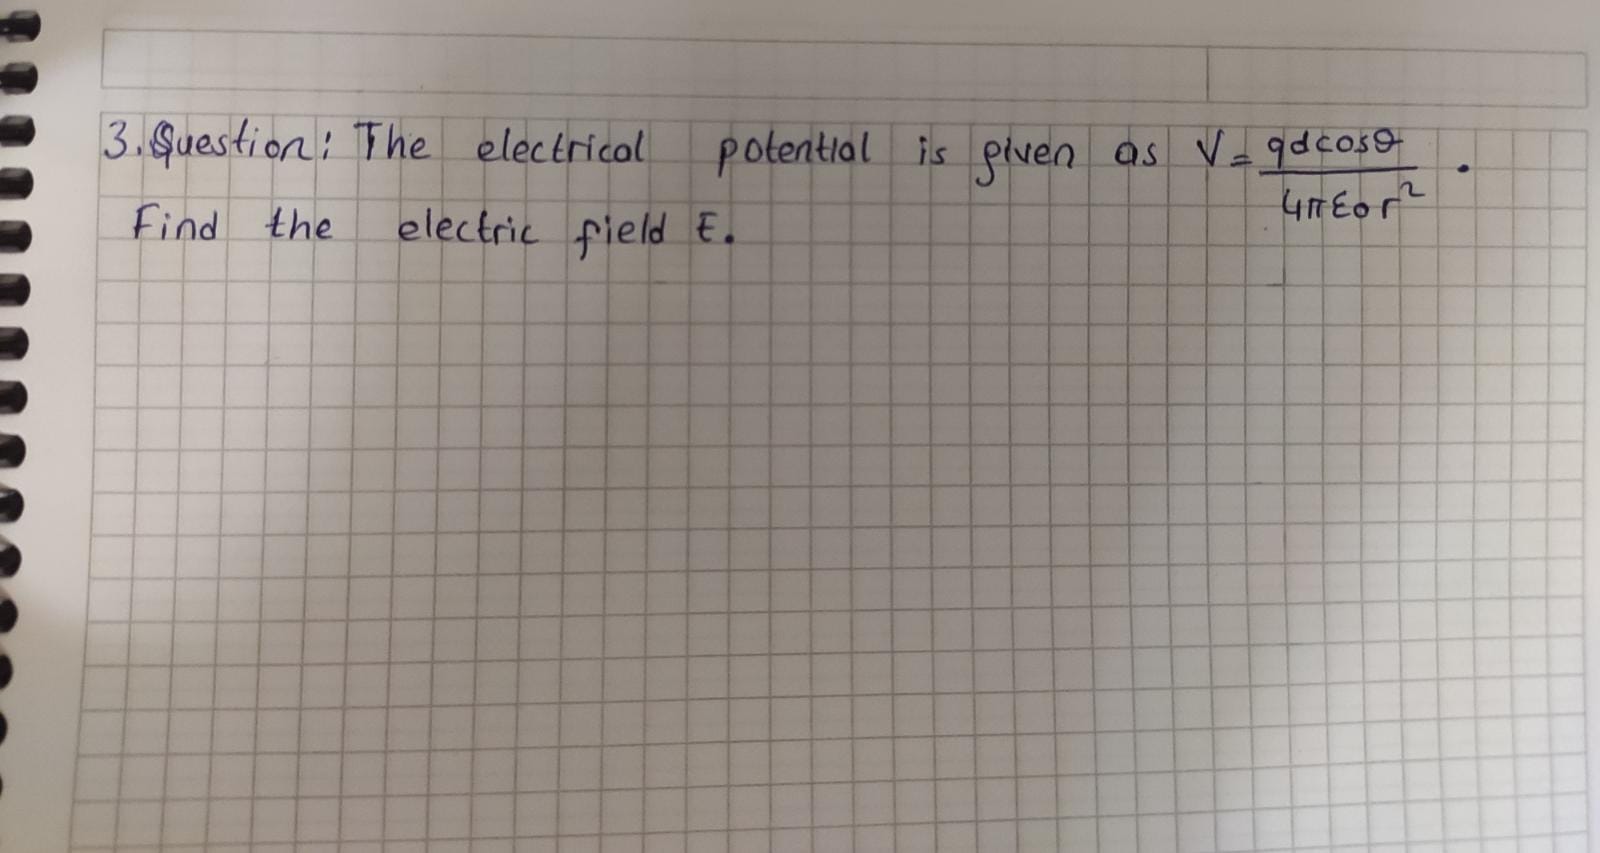 3. Question: The electrical potential is given as V = qdcosθ / 4πε0r² .
Find the electric field E.